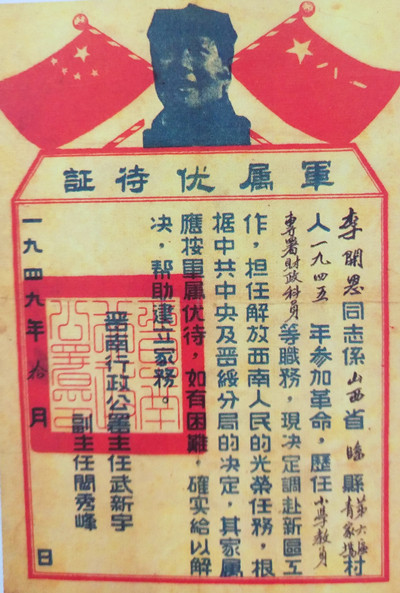 軍属优待証
李開恩同志係山西省臨縣第六區村
人一九四五年参加革命，歷任小學教員
專署財政科員等職務，現决定調赴新區工
作，担任解放西南人民的光榮任務，根
据中共中央及晋綏分局的决定，其家属
應按軍属优待，如有困難，確实給以解
决，帮助建立家務。
晋南行政公署主任武新宇
副主任閻秀峰
一九四九年拾月 日